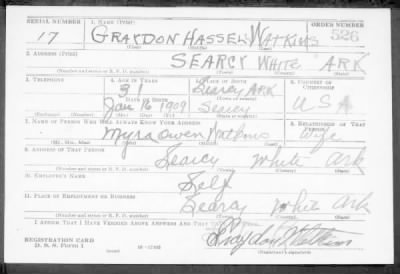 SERIAL NUMBER 1. NAME (Print) ORDER NUMBER
17 GRAYDON HASSEL WATKINS 526
(First) (Middle) (Last)
2. ADDRESS (Print)
SEARCY WHITE ARK
(Number and street or R. F. D. number) (Town) (County) (State)
3. TELEPHONE 4. AGE IN YEARS 5. PLACE OF BIRTH 6. COUNTRY OF CITIZENSHIP
31 Searcy Ark
DATE OF BIRTH (Town or county)
Jan 16 1909 Searcy USA
(Exchange) (Number) (Mo.) (Day) (Yr.) (State or country)
7. NAME OF PERSON WHO WILL ALWAYS KNOW YOUR ADDRESS 8. RELATIONSHIP OF THAT PERSON
Myra Owen Watkins Wife
(Mr., Mrs., Miss) (First) (Middle) (Last)
9. ADDRESS OF THAT PERSON
Searcy White Ark
(Number and street or R. F. D. number) (Town) (County) (State)
10. EMPLOYER'S NAME
Self
11. PLACE OF EMPLOYMENT OR BUSINESS
Searcy White Ark
(Number and street or R. F. D. number) (Town) (County) (State)
I AFFIRM THAT I HAVE VERIFIED ABOVE ANSWERS AND THAT THEY
REGISTRATION CARD
D. S. S. Form 1 Graydon H Watkins
(Registrant's signature)